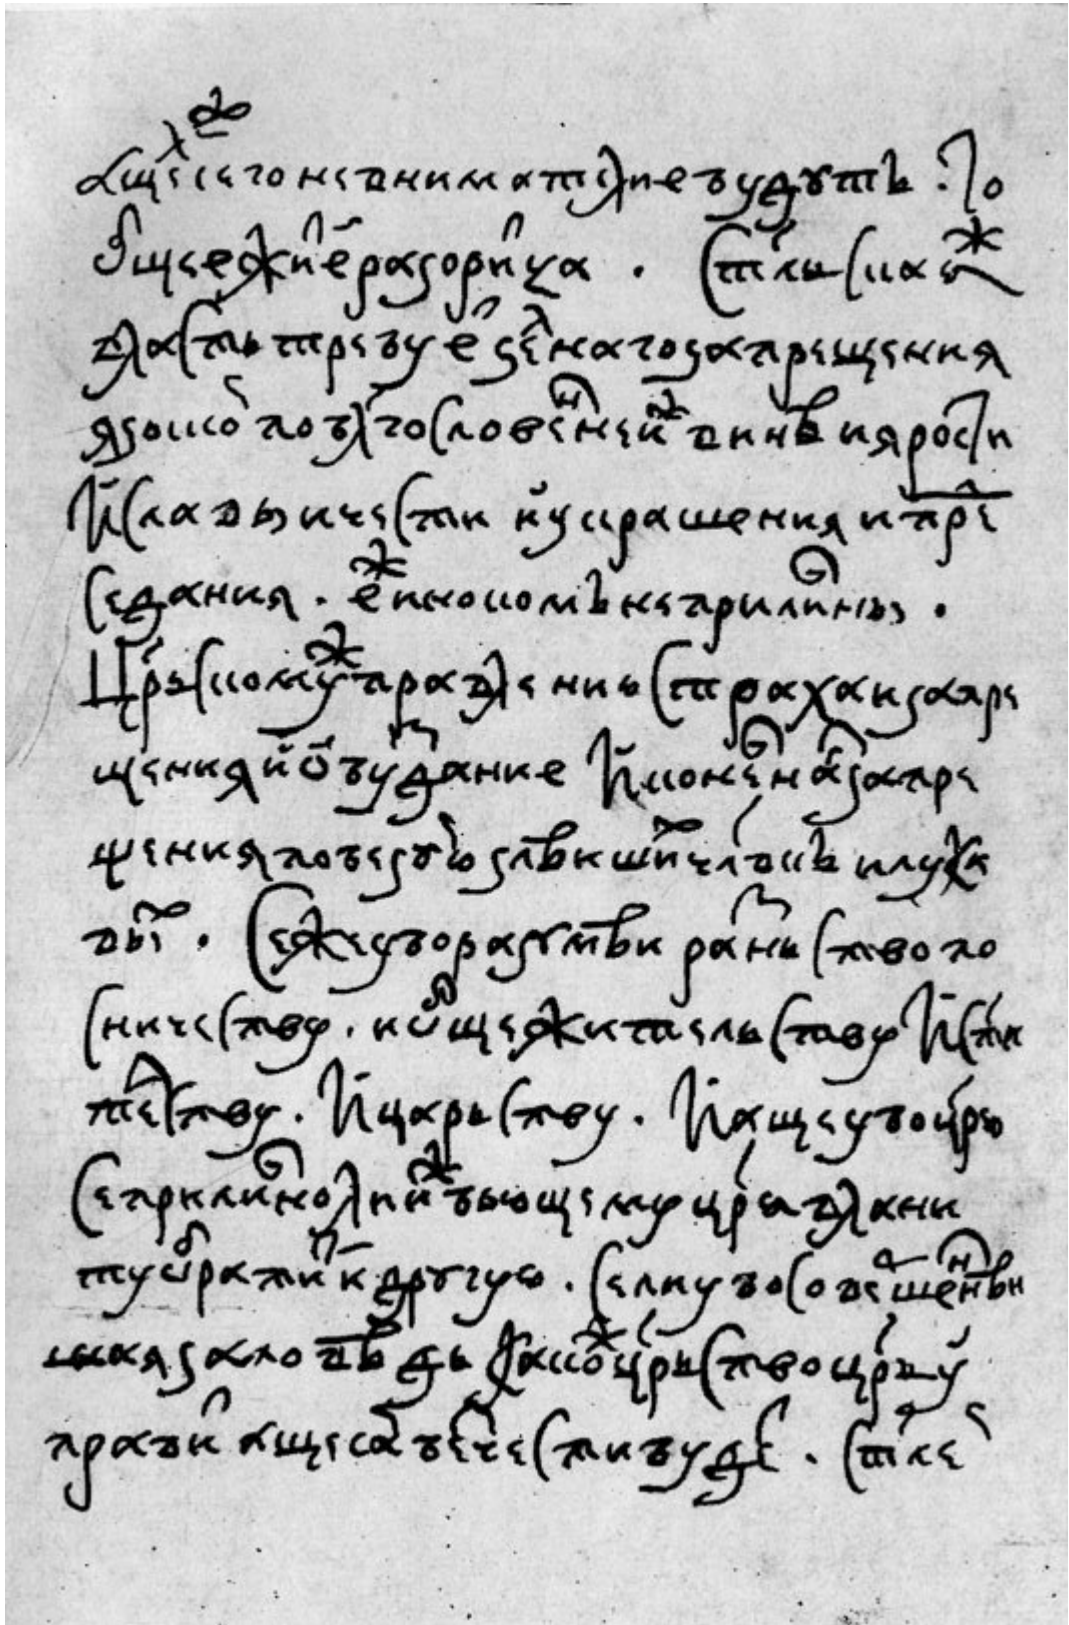 аще сего не внимателне будутъ. То
общее житие разорится. Стльская ж
власть требуетъ зелнаго запрещения
языкомъ по благословеннеи винѣ и ярости
И славы и чести и украшения и пре
седания. еже иноком не прилично.
Црьскому ж правлению страха и запре
щения и обуздание И конечнаго запре
щения по безумию злѣишихъ члвкъ лукав
выхъ. Се же убо разумѣи разньство по
сничеству. и общежительству И сти
тельству. И царьству. И аще убо црю
се прилично ли иже бьющему црь в ланиту
ту обратити и другую. се ли убо совершеннѣи
шая заповѣдь како ж црьство црь у
правити аще самъ без чести будет. стле